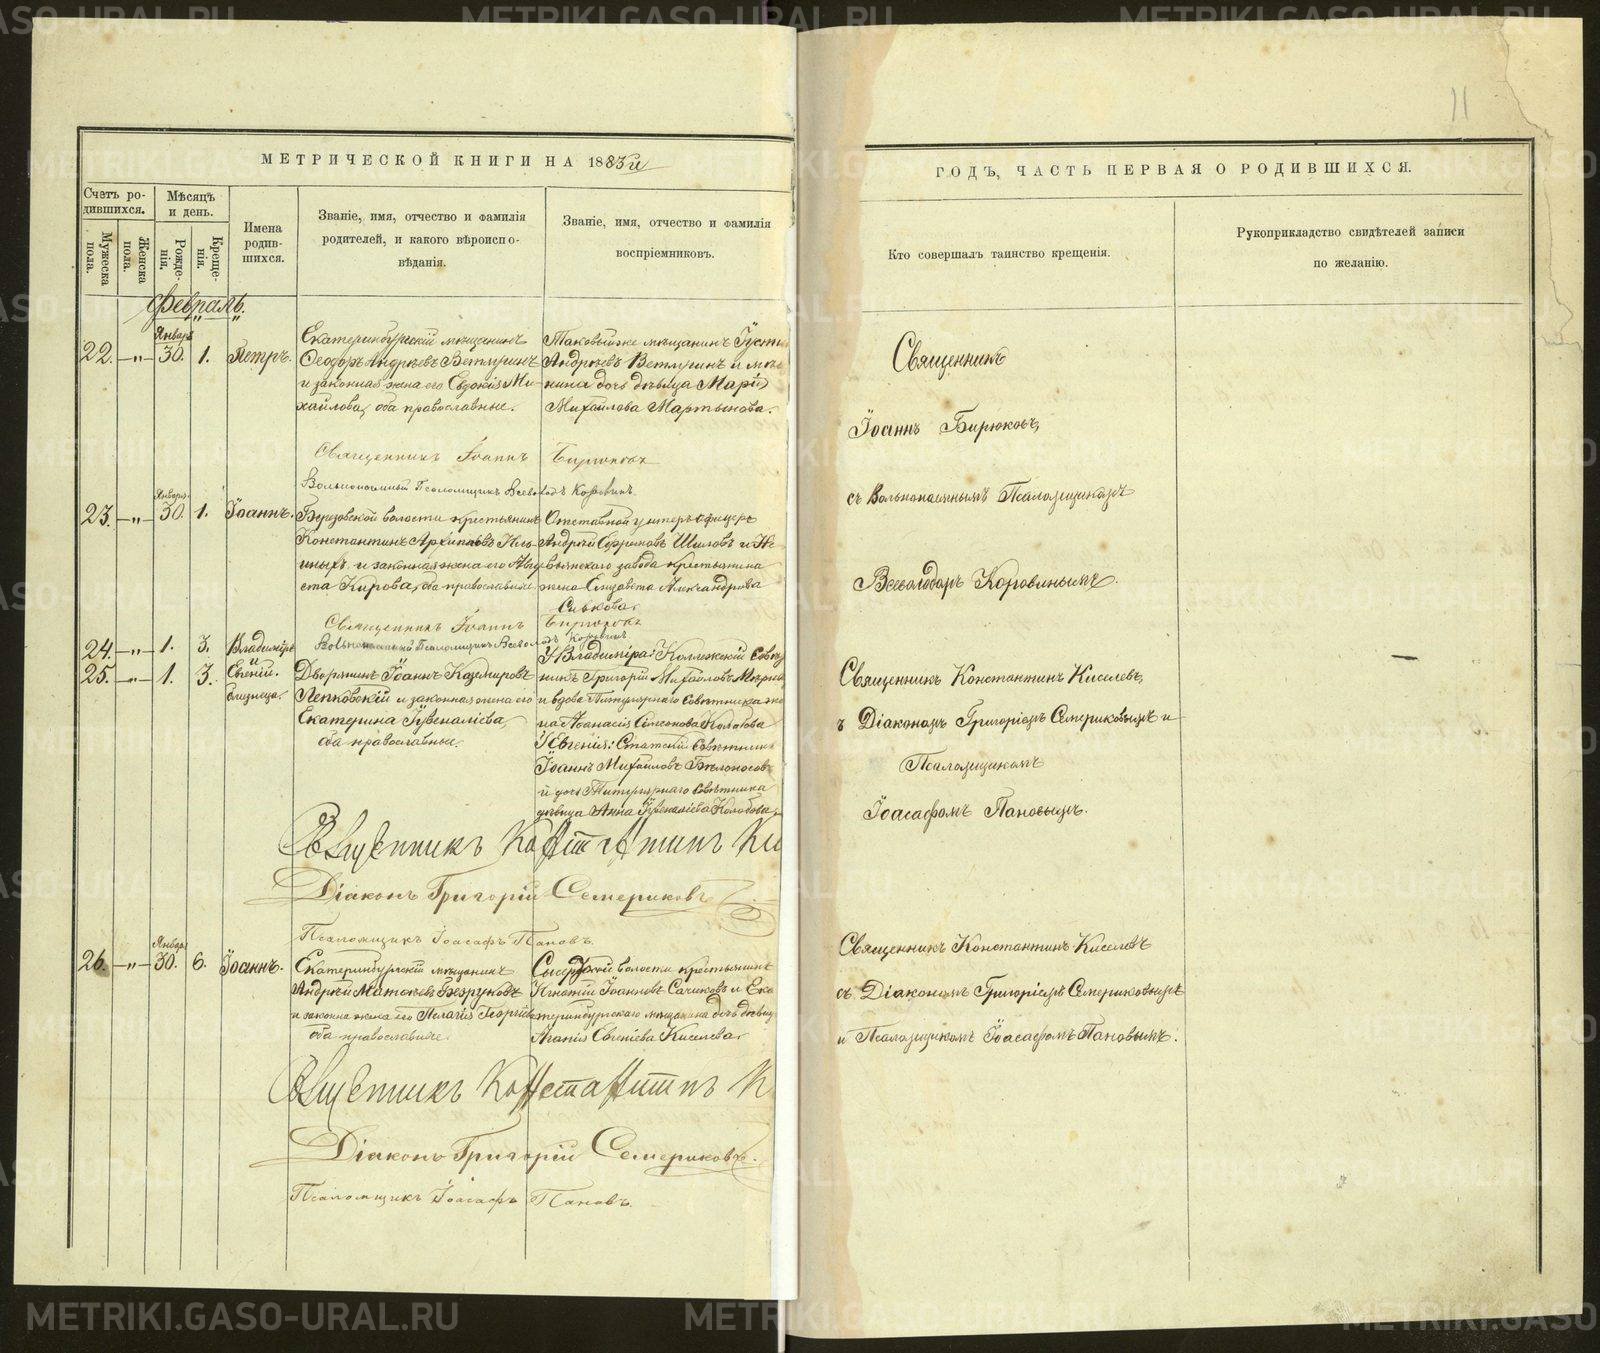 11
МЕТРИЧЕСКОЙ КНИГИ НА 1883й
ГОДЪ, ЧАСТЬ ПЕРВАЯ О РОДИВШИХСЯ.
Счетъ родившихся.
Мужеска пола.
Женска пола.
Мѣсяцъ и день.
Рожденія.
Крещенія.
Имена родившихся.
Званіе, имя, отчество и фамилія
родителей, и какого вѣроиспо-
вѣданія.
Званіе, имя, отчество и фамилія
воспріемниковъ.
Кто совершалъ таинство крещенія.
Рукоприкладство свидѣтелей записи
по желанію.
Февраль.
22. — „ — Января 30. 1. Петръ.
Екатеринбургскій мѣщанинъ
Ѳеодоръ Андреевъ Ветлугинъ
и законная жена его Евдокія Ми-
хайлова, оба православные.
Таковый же мѣщанинъ
Андреевъ Ветлугинъ и
дочь дѣвица Марія
Михайлова Мартынова.
Священникъ
Іоаннъ Бирюковъ,
съ вольнонаемнымъ Псаломщикомъ
Всеволодомъ Коровинымъ.
Священникъ Іоаннъ Бирюковъ
Вольнонаемный Псаломщикъ Всеволодъ Коровинъ.
23. — „ — Января 30. 1. Іоаннъ.
Березовской волости крестьянинъ
Константинъ Архиповъ Иль-
иныхъ и законная жена его Авгу-
ста Кирова, оба православные.
Отставной унтеръ офицеръ
Андрей Ефремовъ Шиловъ и Не-
вьянскаго завода крестьянина
жена Елизавета Александрова
Силькова.
Священникъ Іоаннъ Бирюковъ
Вольнонаемный Псаломщикъ Всеволодъ Коровинъ.
24. — „ — 1. 3. Владиміръ
25. — „ — 1. 3. Евгеній.
близнецы.
Дворянинъ Іоаннъ Казимировъ
Лепковскій и законная жена его
Екатерина Іувеналіева,
оба православные.
У Владиміра: Коллежскій Совѣт-
никъ Григорій Михайловъ
и вдова Титулярнаго Совѣтника
Аѳанасія Симеонова Колотова
У Евгенія: Статскій Совѣтникъ
Іоаннъ Михайловъ Бѣлоносовъ
и дочь Титулярнаго Совѣтника
дѣвица Анна Іувеналіева Колобова.
Священникъ Константинъ Киселевъ,
ъ Діакономъ Григоріемъ Семериковымъ и
Псаломщикомъ
Іоасафомъ Пановымъ.
Священникъ Константинъ Ки
Діаконъ Григорій Семериковъ
Псаломщикъ Іоасафъ Пановъ.
26. — „ — Января 30. 6. Іоаннъ.
Екатеринбургскій мѣщанинъ
Андрей Матѳеевъ Безруковъ
и законна жена его Пелагія Георгіева
оба православные.
Сысертской волости крестьянинъ
Игнатій Іоанновъ Сачиковъ и Ека-
теринбургскаго мѣщанина дочь дѣвица
Агапія Евгеніева Киселева.
Священникъ Константинъ Киселевъ
съ Діакономъ Григоріемъ Семериковымъ
и Псаломщикомъ Іоасафомъ Пановымъ.
Священникъ Константинъ К
Діаконъ Григорій Семериковъ.
Псаломщикъ Іоасафъ Пановъ.
METRIKI.GASO-URAL.RU